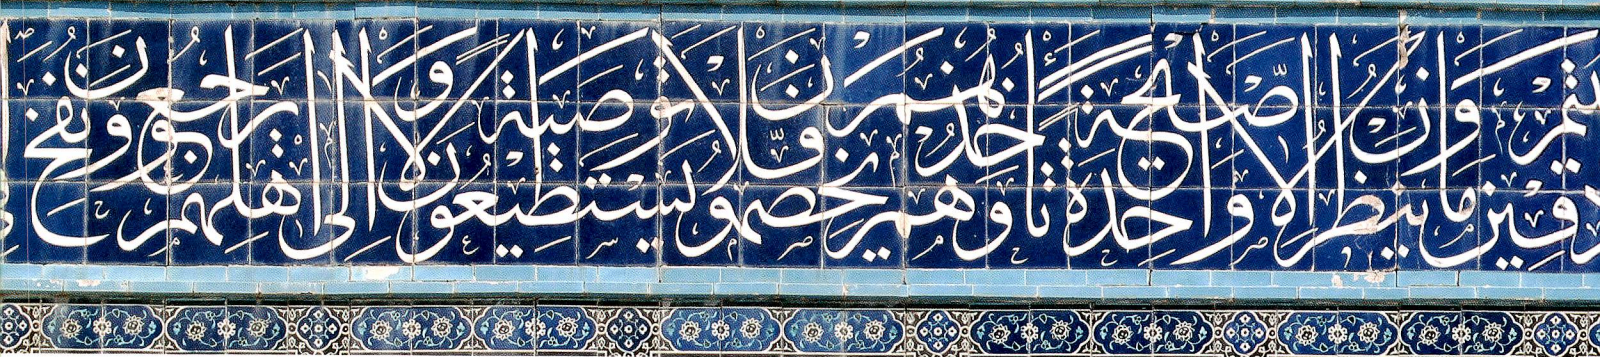 دقين ما ينظرون الا صيحة وحدة تأخذهم وهم يخصمون فلا يستطيعون توصية ولا الى اهلهم يرجعون ونفخ